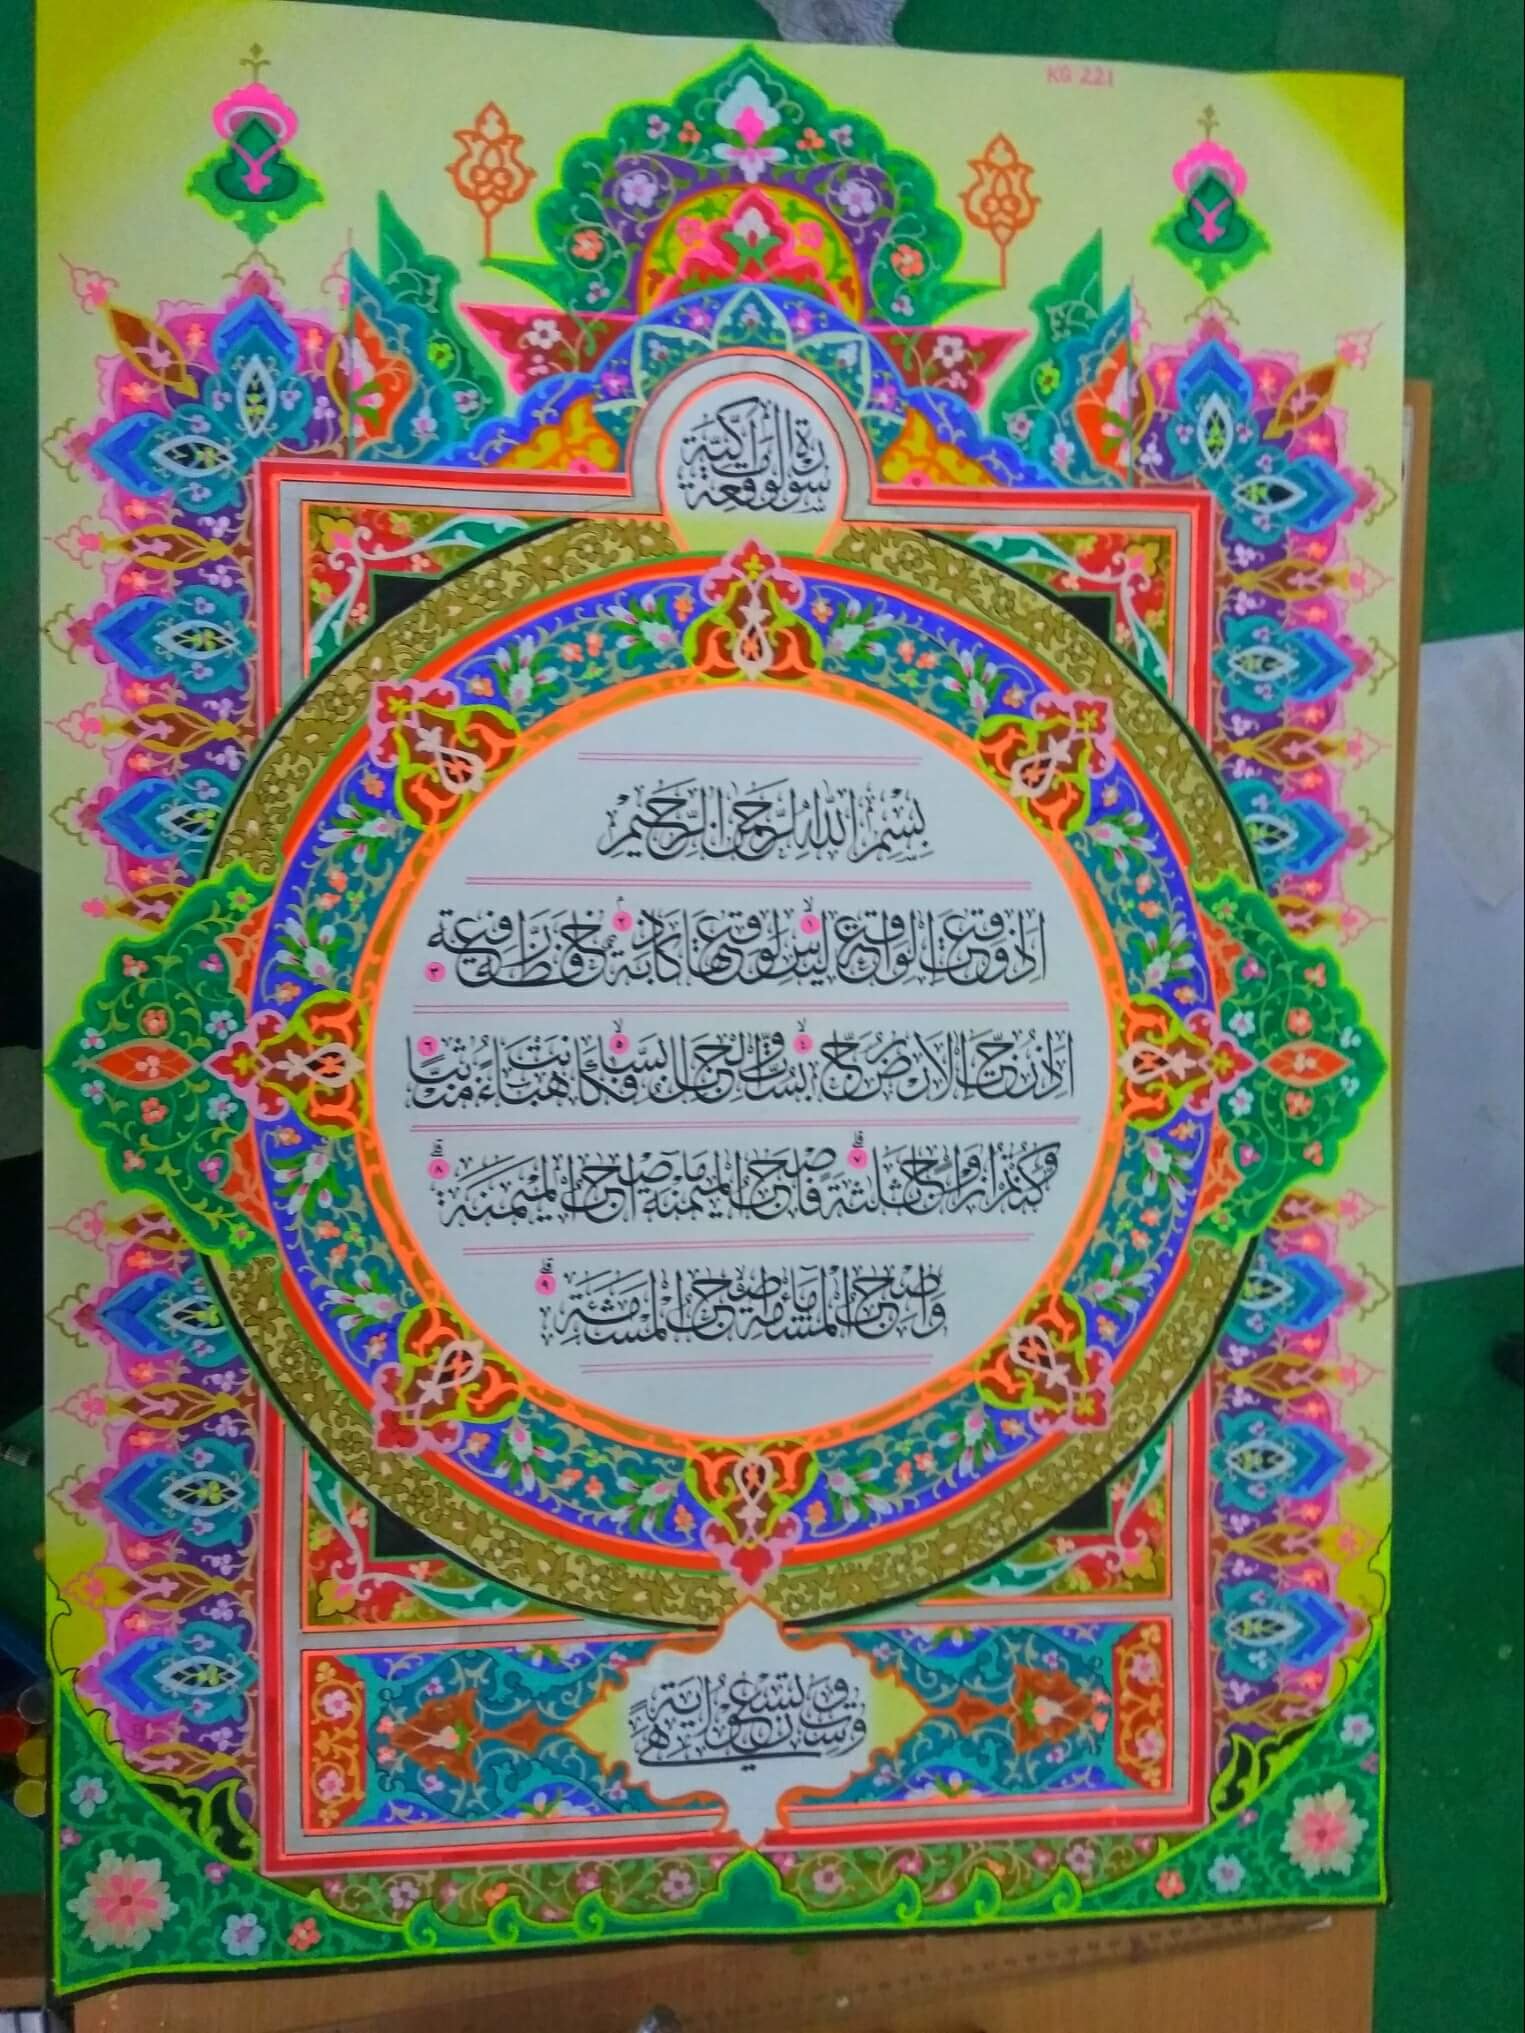 KG 221
سُوْرَةُ الْوَاقِعَةِ مَكِّيَّة
بِسْمِ اللهِ الرَّحْمٰنِ الرَّحِيْمِ
اِذَا وَقَعَتِ الْوَاقِعَةُ ١ لَيْسَ لِوَقْعَتِهَا كَاذِبَةٌ ٢ خَافِضَةٌ رَّافِعَةٌ ٣
اِذَا رُجَّتِ الْاَرْضُ رَجًّا ٤ وَّبُسَّتِ الْجِبَالُ بَسًّا ٥ فَكَانَتْ هَبَاۤءً مُّنْۢبَثًّا ٦
وَّكُنْتُمْ اَزْوَاجًا ثَلٰثَةً ٧ فَاَصْحٰبُ الْمَيْمَنَةِ مَآ اَصْحٰبُ الْمَيْمَنَةِ ٨
وَاَصْحٰبُ الْمَشْـَٔمَةِ مَآ اَصْحٰبُ الْمَشْـَٔمَةِ ٩
وَهِيَ سِتٌّ وَتِسْعُوْنَ اٰيَة